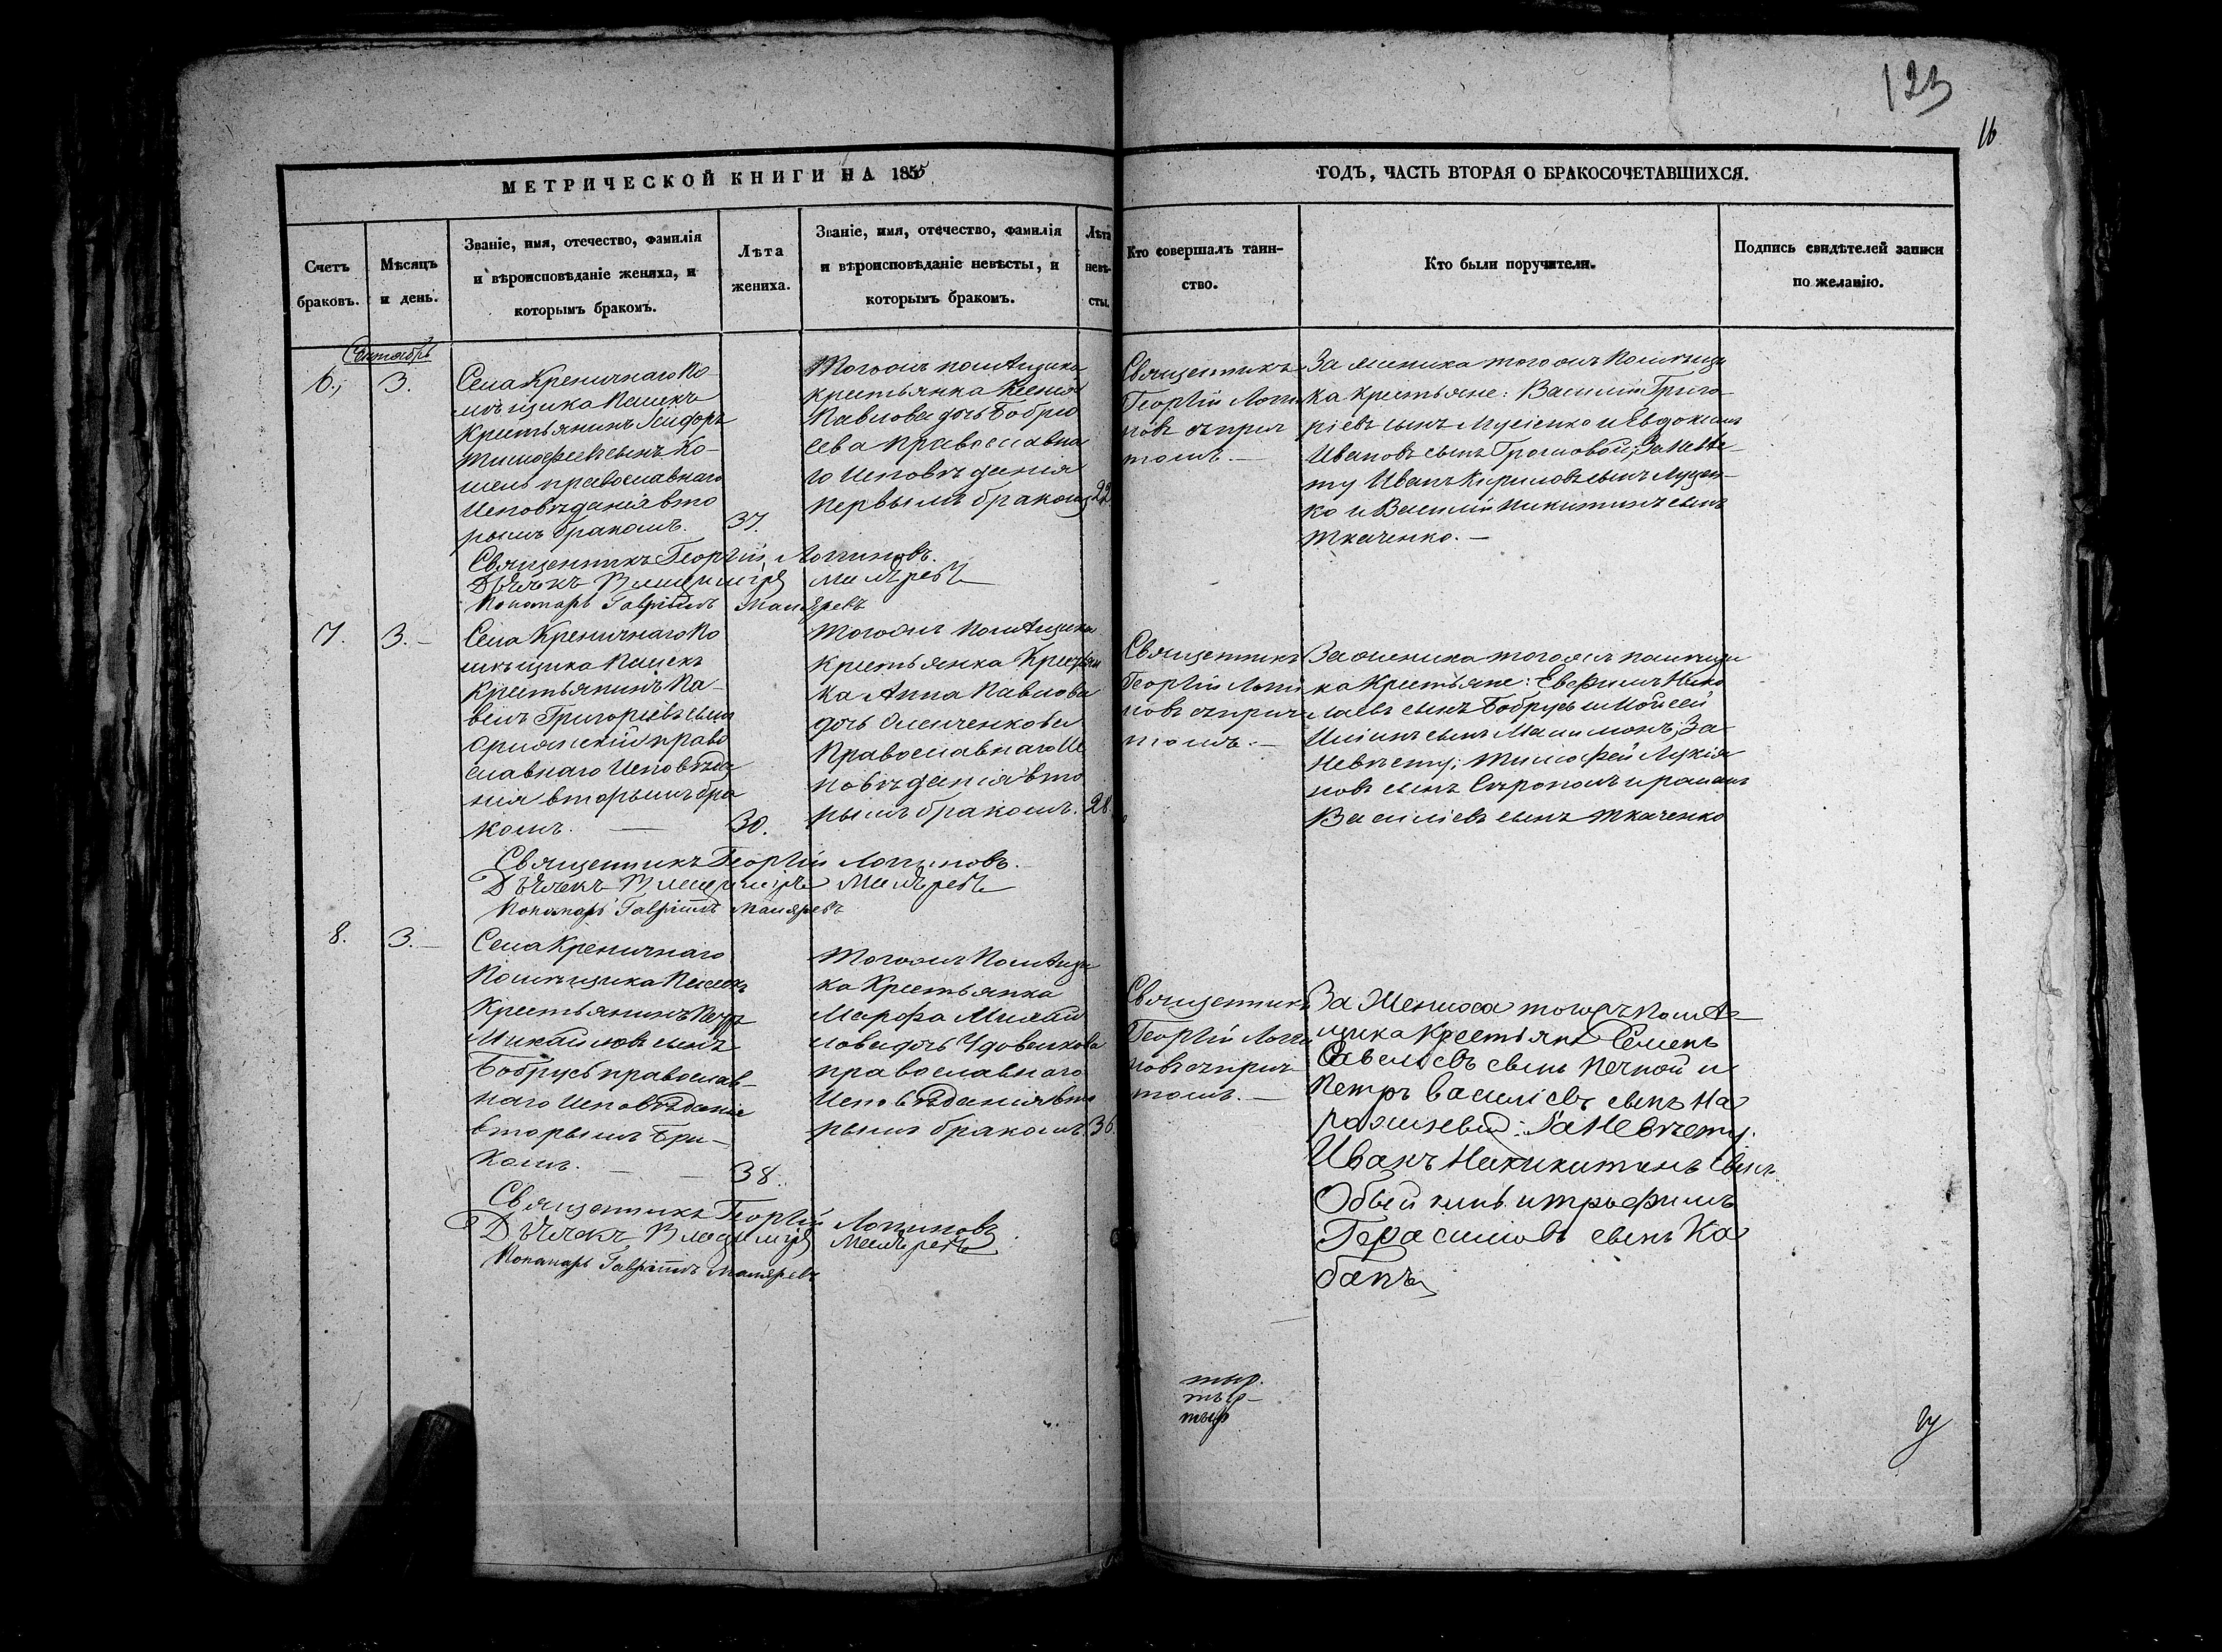 123
16
МЕТРИЧЕСКОЙ КНИГИ НА 1855
ГОДЪ, ЧАСТЬ ВТОРАЯ О БРАКОСОЧЕТАВШИХСЯ.
Счетъ
браковъ.
Мѣсяцъ
и день.
Званіе, имя, отечество, фамилія
и вѣроисповѣданіе жениха, и
которымъ бракомъ.
Лѣта
жениха.
Званіе, имя, отечество, фамилія
и вѣроисповѣданіе невѣсты, и
которымъ бракомъ.
Лѣта
невѣ-
сты.
Кто совершалъ таин-
ство.
Кто были поручители.
Подпись свидѣтелей записи
по желанію.
Сентябрь
6.
3.
Села Креничнаго По-
мѣщика
Крестьянинъ
Тимофеевъ сынъ Ко-
православнаго
Исповѣданія вто
рымъ бракомъ.
37.
Тогожъ помѣщика
крестьянка Ксенія
Павлова дочь
православна
го Исповѣданія
первымъ бракомъ
22
Священникъ
Георгій Логги
новъ съ прич
томъ. —
За жениха тогожъ Помѣщи
ка Крестьяне: Василій Григо-
ріевъ сынъ и Евдокимъ
Ивановъ сынъ Громовой; За Невѣс-
ту Иванъ Кириловъ сынъ Луцен-
ко и Василій Никитинъ сынъ
Ткаченко. —
Священникъ Георгій Логгиновъ.
Дьячекъ Владиміръ
Пономарь Гавріилъ
7.
3. —
Села Креничнаго По
мѣщика
Крестьянинъ Па-
велъ Григоріевъ сынъ
право
славнаго Исповѣда
нія вторымъ бра
комъ. —
30.
Тогожъ Помѣщика
Крестьянка
ка Анна Павлова
дочь
Православнаго Ис
повѣданія вто
рымъ бракомъ.
28.
Священникъ
Георгій Логги
новъ съ прич
томъ. —
За жениха тогожъ помѣщи
ка Крестьяне: Евфимъ Нико
лаевъ сынъ Бобрусь и Мойсей
сынъ За
Невѣсту: Тимофей Лукія
новъ сынъ и Романъ
Василіевъ сынъ Ткаченко
Священникъ Георгій Логгиновъ.
Дьячекъ Владиміръ
Пономарь Гавріилъ
8.
3. —
Села Креничнаго
Помѣщика
Крестьянинъ Петръ
Михайловъ сынъ
Бобрусь православ-
наго Исповѣданіе
вторымъ Бра-
комъ. —
38.
Тогожъ Помѣщи
ка Крестьянка
Марфа Михай
лова дочь Удовенкова
православнаго
Исповѣданія вто
рымъ бракомъ.
36.
Священникъ
Георгій Логги
новъ съ прич
томъ. —
За Жениха тогожъ помѣ-
щика Крестьяне Семенъ
Савельевъ сынъ Печной и
Петръ Василіевъ сынъ
За Невѣсту:
Иванъ сынъ
и трофимъ
Герасимовъ сынъ Ка
банъ
Священникъ Георгій Логгиновъ
Дьячекъ Владиміръ
Пономарь Гавріилъ